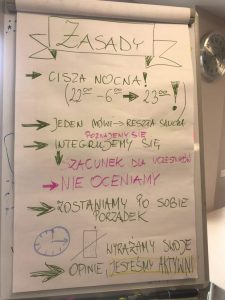 ZASADY
→ CISZA NOCNA!
(22⁰⁰ - 6⁰⁰ → 23⁰⁰!)
→ JEDEN MÓWI → RESZTA SŁUCHA
POZNAJEMY SIĘ
→ INTEGRUJEMY SIĘ
SZACUNEK DLA UCZESTNIKÓW
→ NIE OCENIAMY
→ ZOSTAWIAMY PO SOBIE
PORZĄDEK
WYRAŻAMY SWOJE
OPINIE JESTEŚMY AKTYWNI